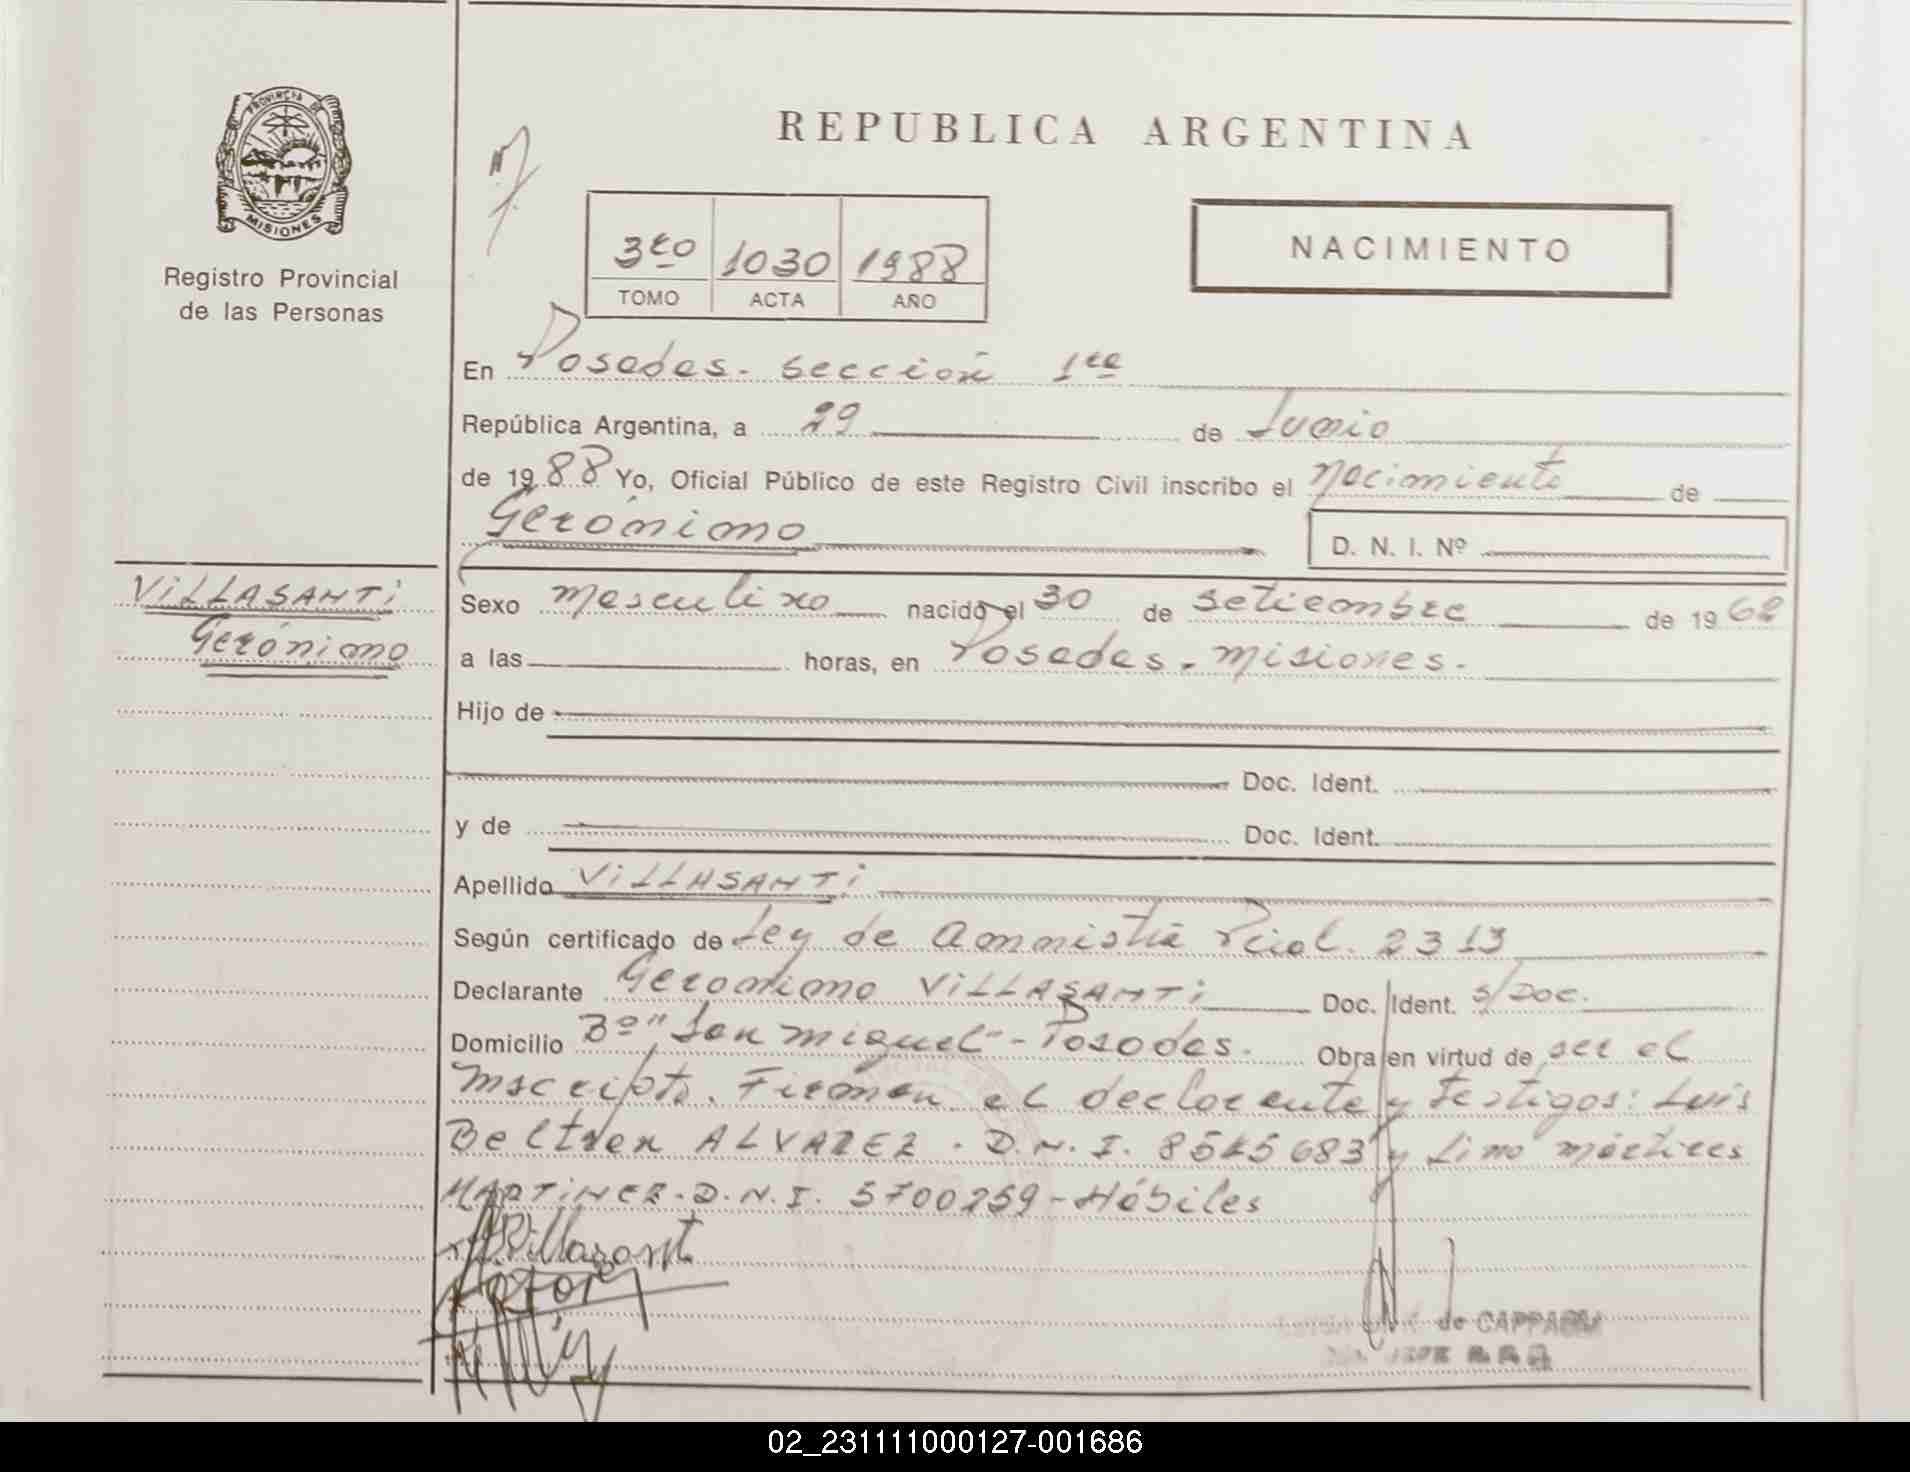 PROVINCIA DE
MISIONES
Registro Provincial
de las Personas
REPUBLICA ARGENTINA
3ro 1030 1988
TOMO ACTA AÑO
NACIMIENTO
En Posadas. Sección 1ra
República Argentina, a 29 de Junio
de 1988 Yo, Oficial Público de este Registro Civil inscribo el Nacimiento de
Gerónimo
D. N. I. Nº
VILLASANTI
Gerónimo
Sexo masculino nacido el 30 de setiembre de 1962
a las horas, en Posadas. Misiones.
Hijo de
Doc. Ident.
y de Doc. Ident.
Apellido VILLASANTI
Según certificado de Ley de Amnistía Pcial. 2313
Declarante Geronimo VILLASANTI Doc. Ident. s/Doc.
Domicilio Bº "San Miguel" - Posadas. Obra en virtud de ser el
Inscripto. Firman el declarante y testigos: Luis
Beltran ALVAREZ. D.N.I. 8545683 y Lino mártires
MARTINEZ. D.N.I. 5700259 - Hábiles
Villasanti
de CAPPA
02_231111000127-001686